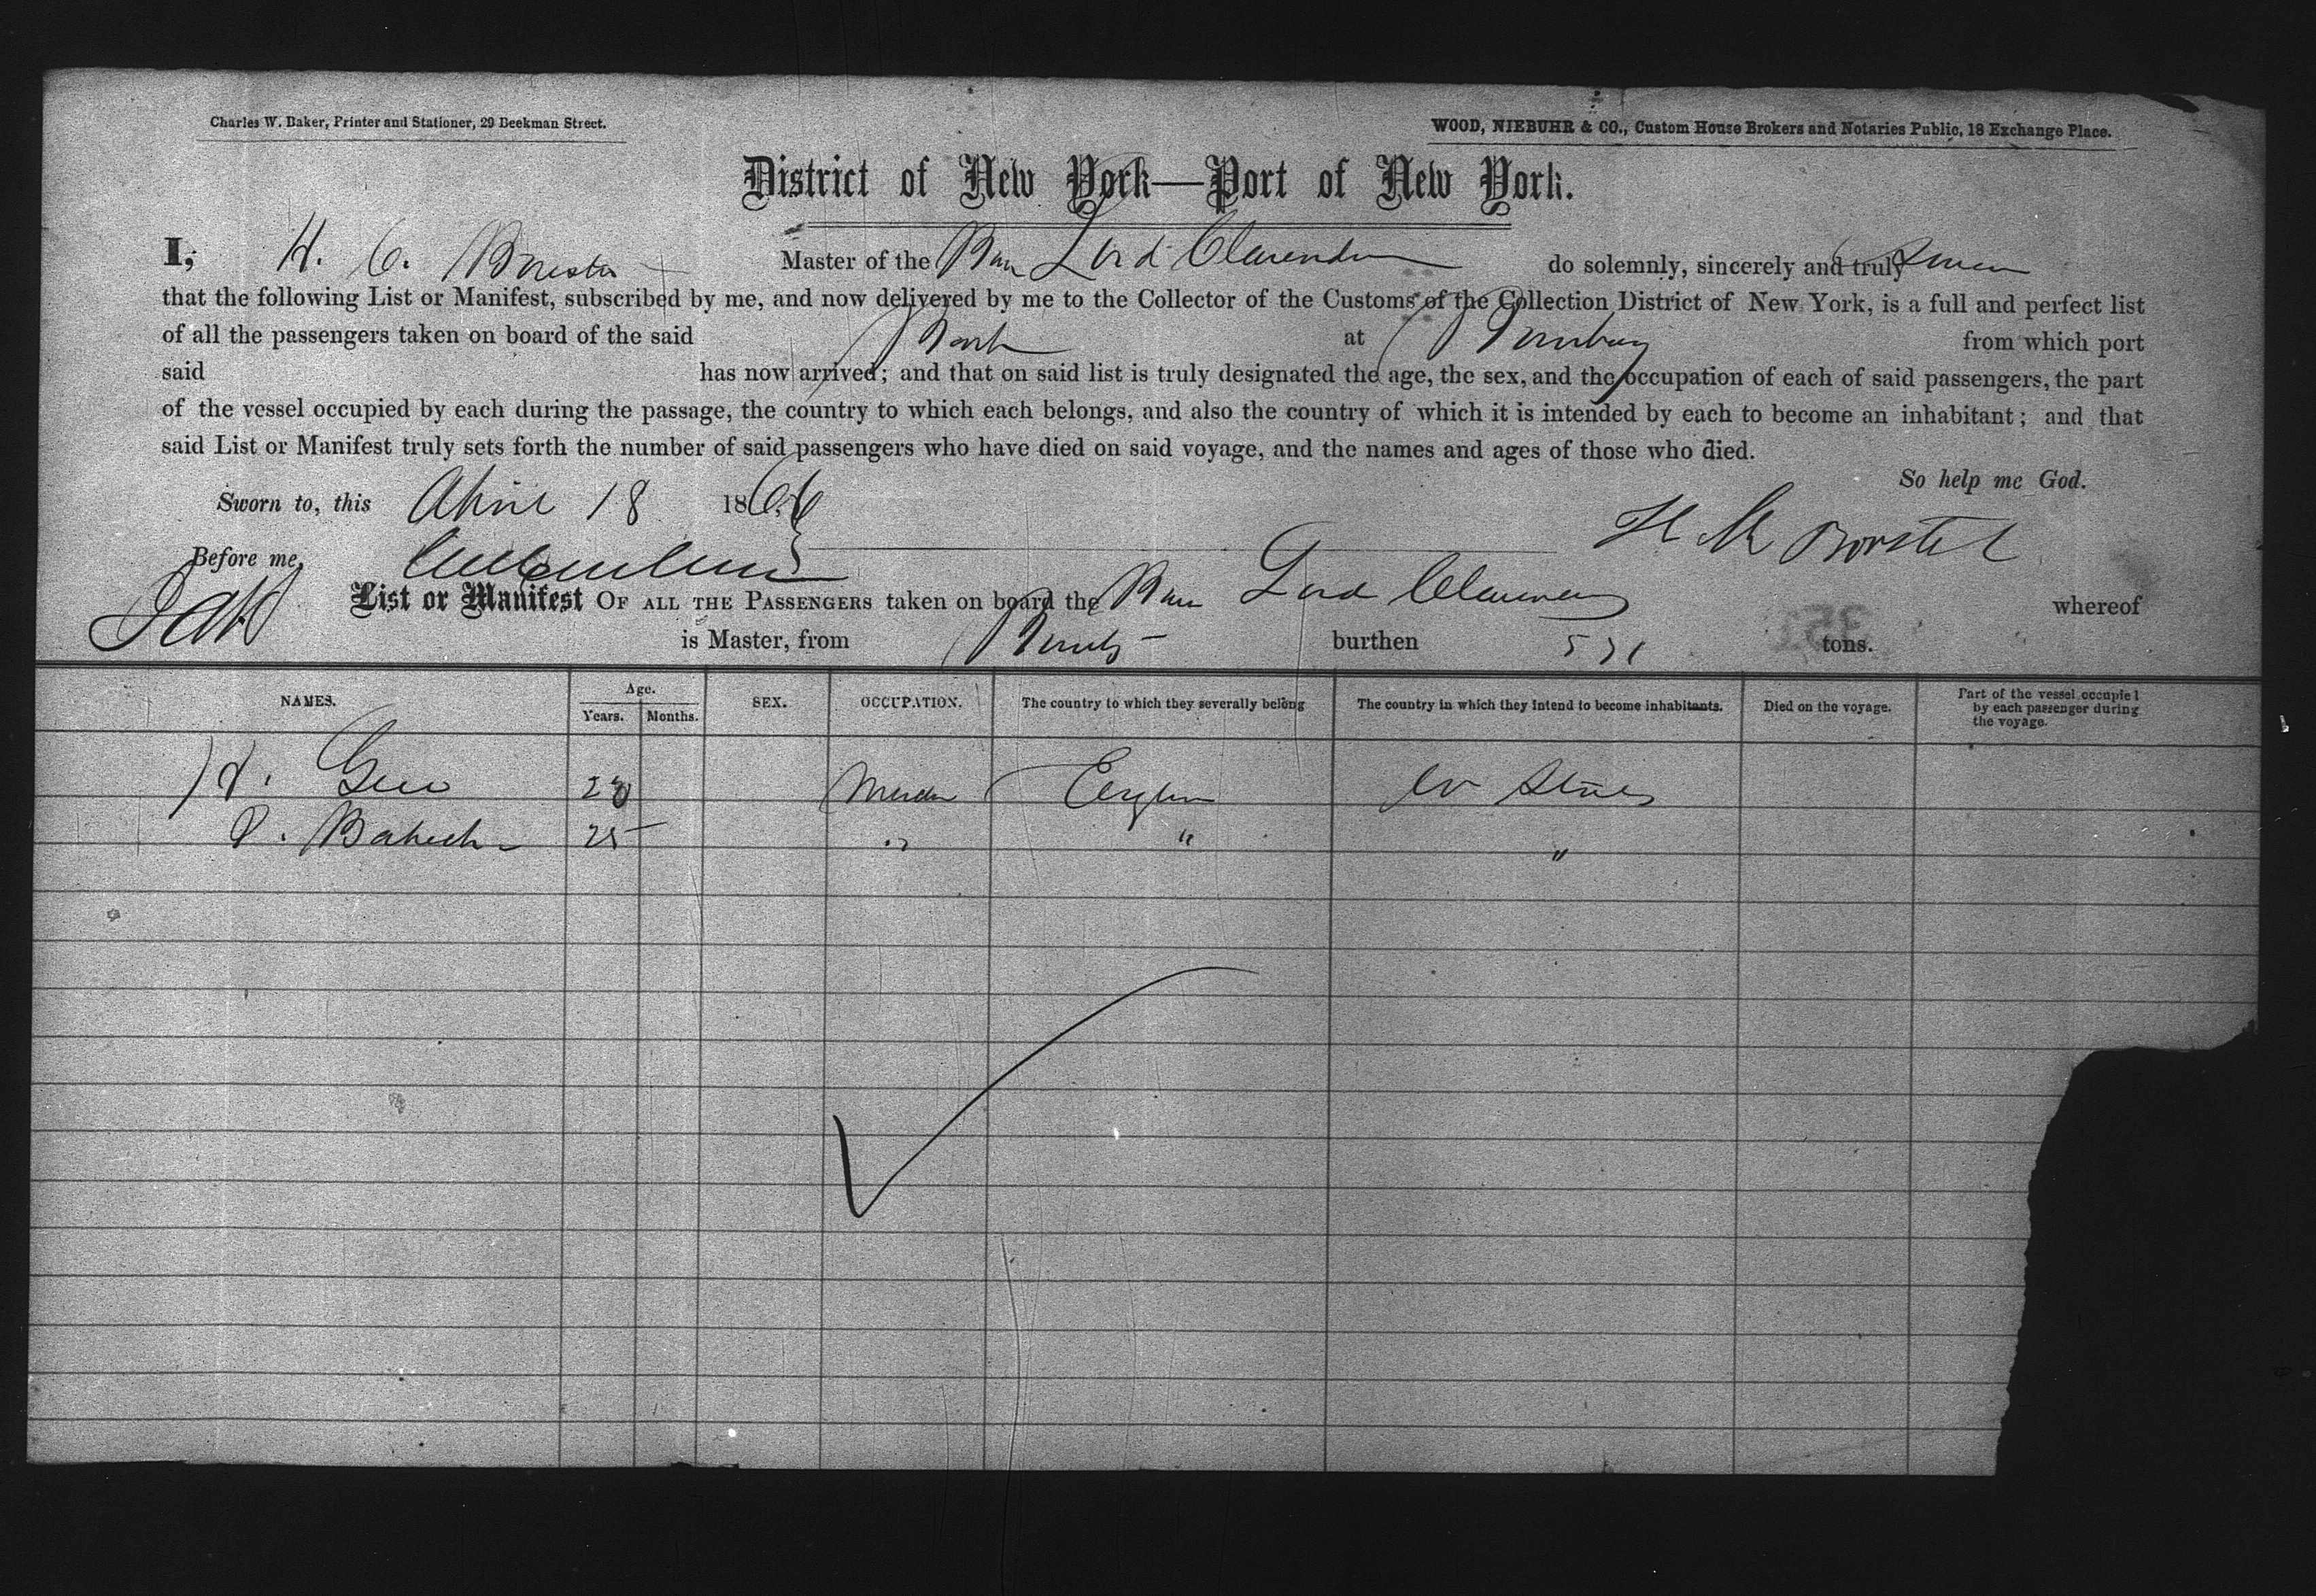 Charles W. Baker, Printer and Stationer, 29 Beekman Street.
WOOD, NIEBUHR & CO., Custom House Brokers and Notaries Public, 18 Exchange Place.
District of New York—Port of New York.
I, H. C. Master of the Lord Clarendon do solemnly, sincerely and truly swear
that the following List or Manifest, subscribed by me, and now delivered by me to the Collector of the Customs of the Collection District of New York, is a full and perfect list
of all the passengers taken on board of the said Bark at from which port
said has now arrived; and that on said list is truly designated the age, the sex, and the occupation of each of said passengers, the part
of the vessel occupied by each during the passage, the country to which each belongs, and also the country of which it is intended by each to become an inhabitant; and that
said List or Manifest truly sets forth the number of said passengers who have died on said voyage, and the names and ages of those who died.
So help me God.
Sworn to, this April 18 1866
Before me,
List or Manifest OF ALL THE PASSENGERS taken on board the Lord Clarendon whereof
is Master, from burthen tons.
NAMES. Age. Years. Months. SEX. OCCUPATION. The country to which they severally belong The country in which they intend to become inhabitants. Died on the voyage. Part of the vessel occupied by each passenger during the voyage.
H. England States
25 " " "